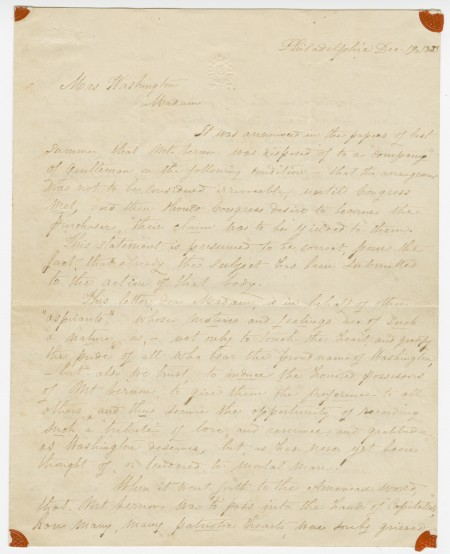 Philadelphia Dec 19, 1853
Mrs Washington
Madam
It was announced in the papers of last
Summer, that Mt. Vernon was disposed of to a "company"
of Gentlemen on the following condition - that the arrangement
was not to be considered irrevocable, until Congress
Met, and then should Congress desire to become the
purchaser, "their claim was to be yielded to them.
This statement is presumed to be correct, from the
fact that already the subject has been submitted
to the action of that body.
This letter, dear Madam, is in behalf of other
"aspirants", whose motives and feelings are of such
a nature, as, - not only to touch the heart, and gratify
the pride of all who bear the loved name of Washington,
- but also we trust, to induce the honored possessors
of Mt. Vernon, to give them the preference to all
others, and thus secure the opportunity of recording
such a tribute of love, and reverence, and gratitude,
as Washington deserves, but, as has never yet been
thought of, or tendered to mortal man.
When it went forth to the American world
that Mt Vernon was to pass into the hands of Capitalists,
how many, many patriotic hearts, were sorely grieved